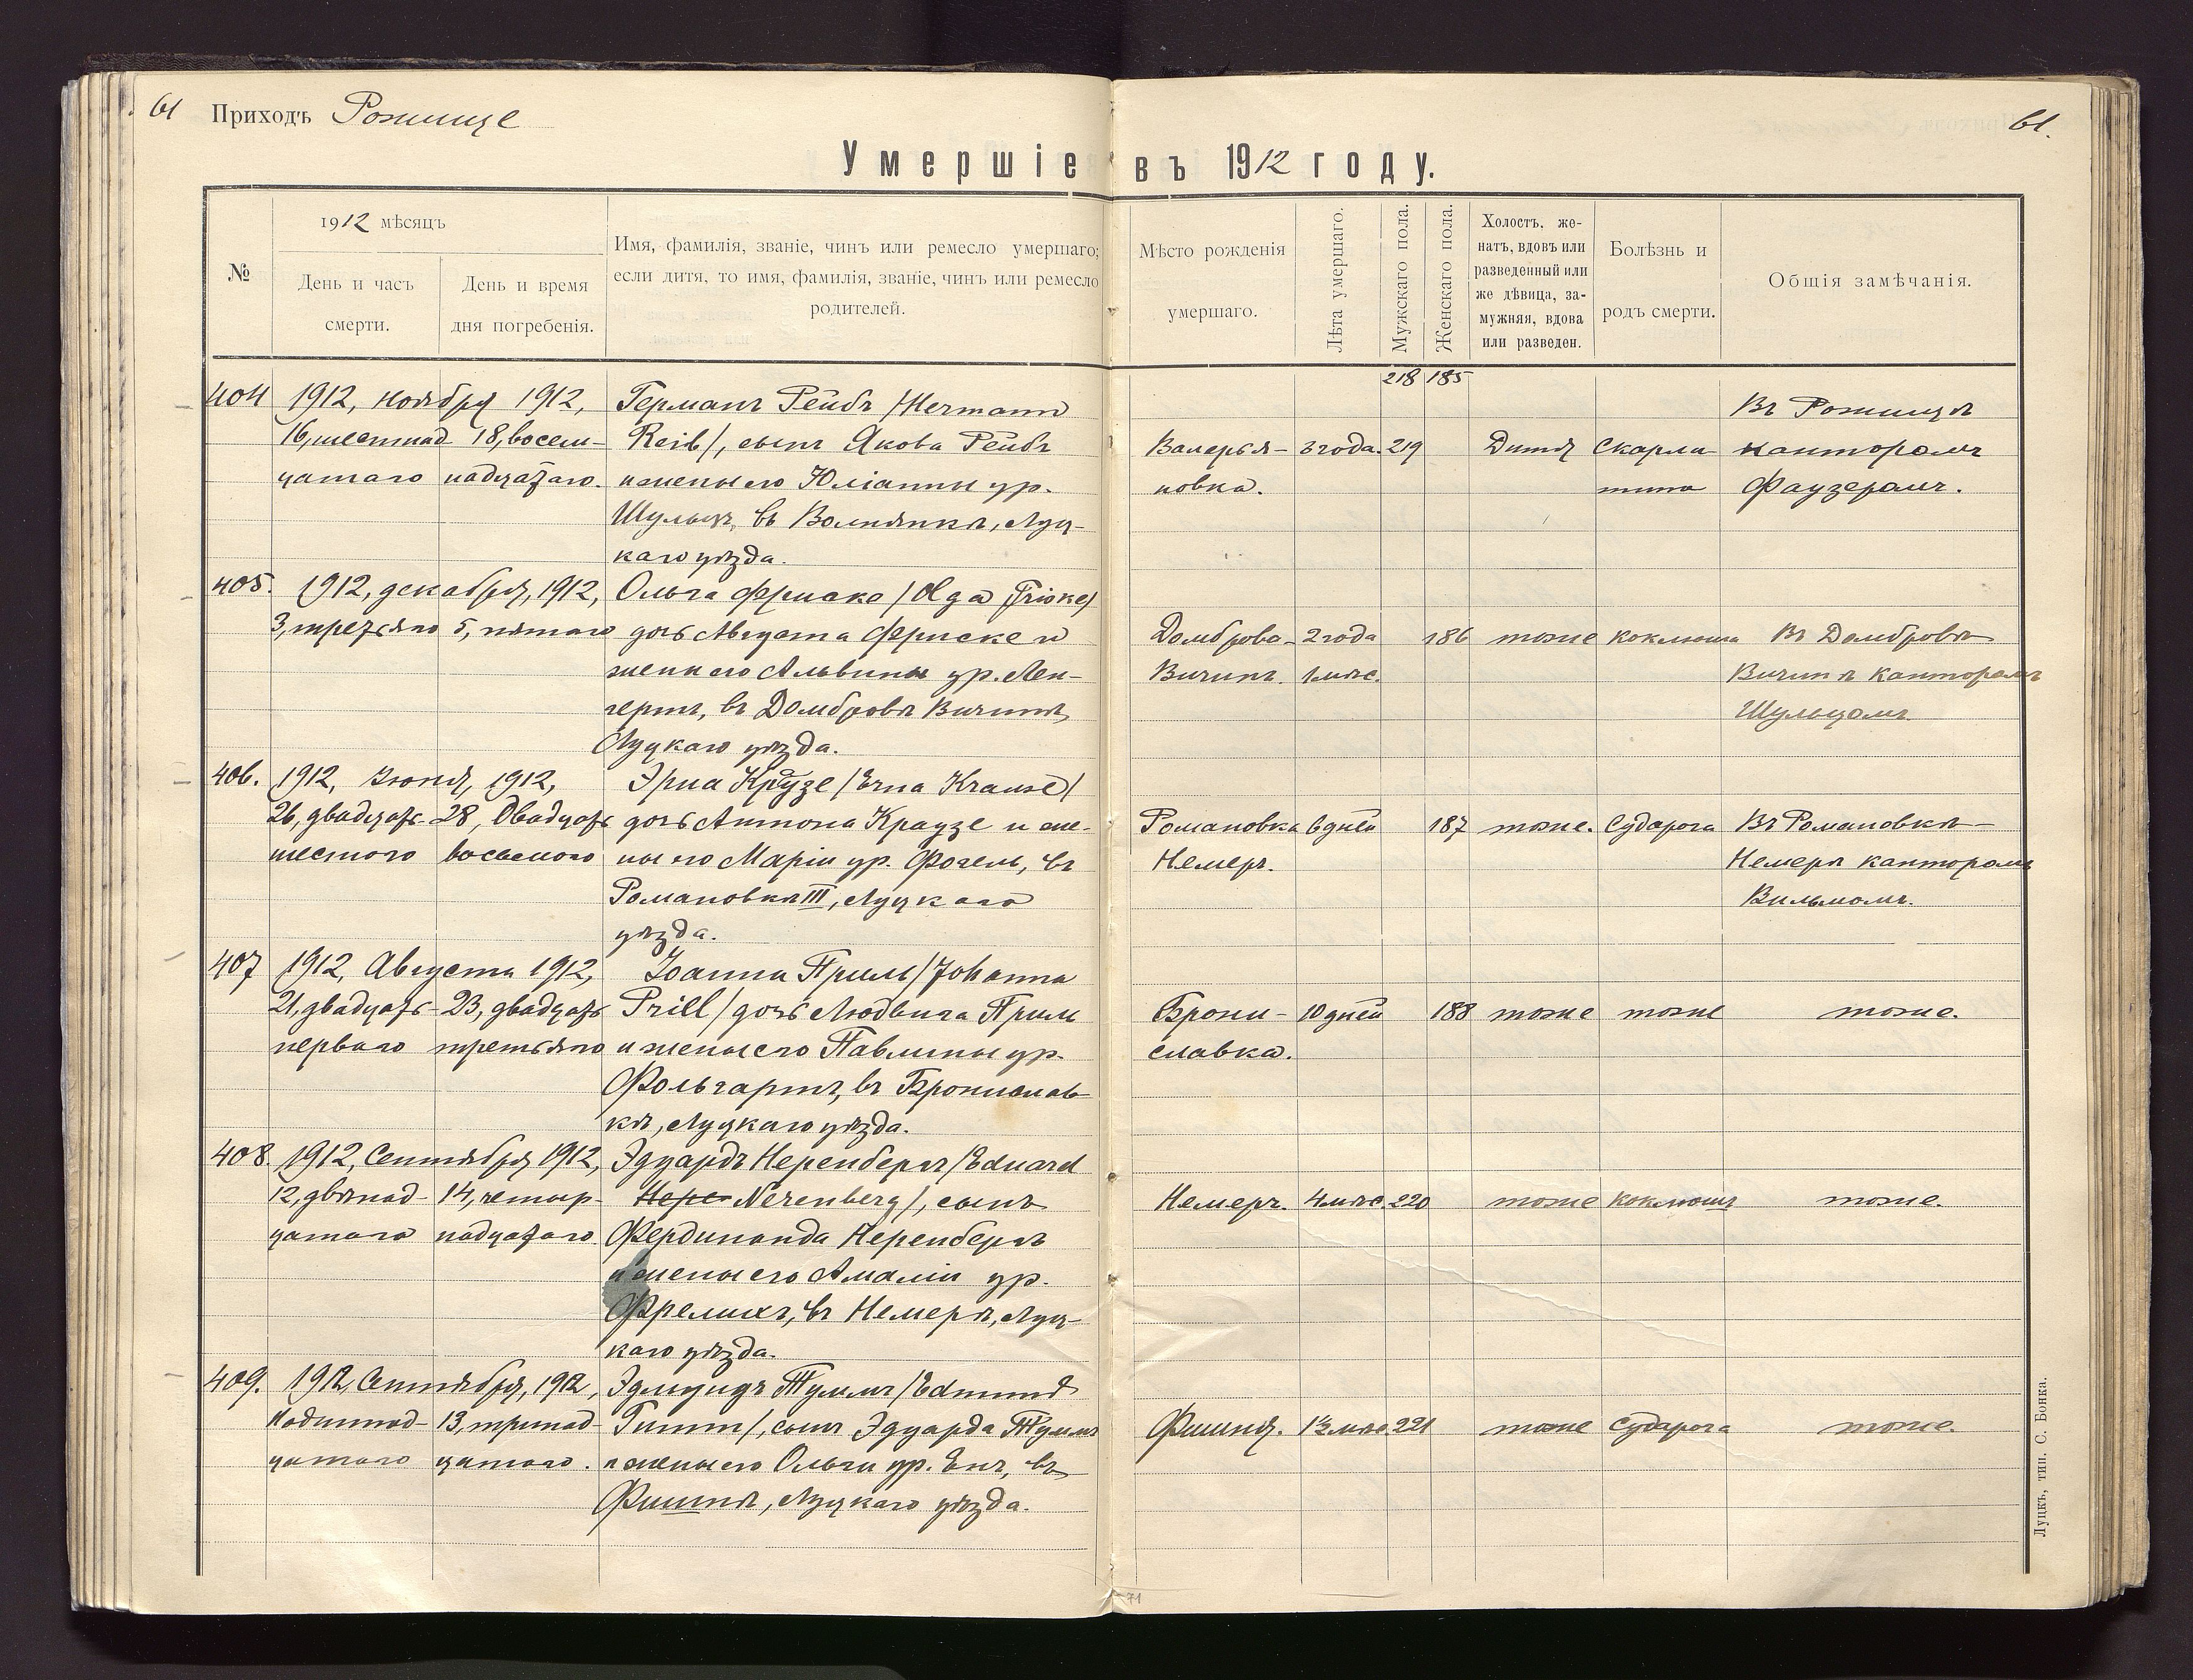 61 Приходъ Рожище
61.
Умершіе въ 1912 году.
№
1912 мѣсяцъ
День и часъ
смерти.
День и время
дня погребенія.
Имя, фамилія, званіе, чинъ или ремесло умершаго;
если дитя, то имя, фамилія, званіе, чинъ или ремесло
родителей.
Мѣсто рожденія
умершаго.
Лѣта умершаго.
Мужскаго пола.
Женскаго пола.
Холостъ, же-
натъ, вдовъ или
разведенный или
же дѣвица, за-
мужняя, вдова
или разведен.
Болѣзнь и
родъ смерти.
Общія замѣчанія.
218 185
404 1912, ноября 1912, Германъ Рейбъ /Hermann Въ Рожищѣ
16, шестнад- 18, восем- Reib/, сынъ Якова Рейбъ Валерья- 3 года. 219 Дитя Скарла- канторомъ
цатаго надцатаго. и жены его Юліанны ур. новка. тина Фаузеромъ.
Шульцъ, въ Волнянкѣ, Луц-
каго уѣзда.
405. 1912, декабря, 1912, Ольга Фриске /Olga Friske/
3, третьяго 5, пятаго дочь Августа Фриске и Домброва- 2 года 186 тоже коклюшъ Въ Домбровѣ
жены его Альвины ур. Лен- Вичинъ. 1 мѣс. Вичинѣ канторомъ
гертъ, въ Домбровѣ Вичинѣ, Шульцомъ.
Луцкаго уѣзда.
406. 1912, Іюня, 1912, Эрна Краузе /Erna Krause/
26, двадцать- 28, двадцать дочь Антона Краузе и же- Романовка 6 дней 187 тоже. Судорога Въ Романовкѣ-
шестого восьмого ны его Маріи ур. Фогель, въ Немеръ. Немерѣ канторомъ
Романовкѣ III, Луцкаго Вильмомъ.
уѣзда.
407 1912, Августа 1912, Іоанна Приль /Johanna
21, двадцать- 23, двадцать Prill/ дочь Людвига Приль Брони- 10 дней 188 тоже тоже тоже.
перваго третьяго и жены его Павлины ур. славка.
Фольгартъ, въ Бронислав-
кѣ, Луцкаго уѣзда.
408. 1912, Сентября 1912, Эдуардъ Неренбергъ /Eduard
12, двѣнад- 14, четыр- Нере Nerenberg/, сынъ Немеръ. 4 мѣс. 220 тоже коклюшъ тоже.
цатаго надцатаго. Фердинанда Неренбергъ
и жены его Амаліи ур.
Фрелихъ, въ Немерѣ, Луц-
каго уѣзда.
409. 1912, Сентября, 1912, Эдмундъ Тиммъ /Edmund
13, тринад- Timm/, сынъ Эдуарда Тиммъ 1½ мѣс. 221 тоже Судорога тоже.
цатаго цатаго. и жены его Ольги ур. въ
Луцкаго уѣзда.
Луцкъ, тип. С. Бонка.
71